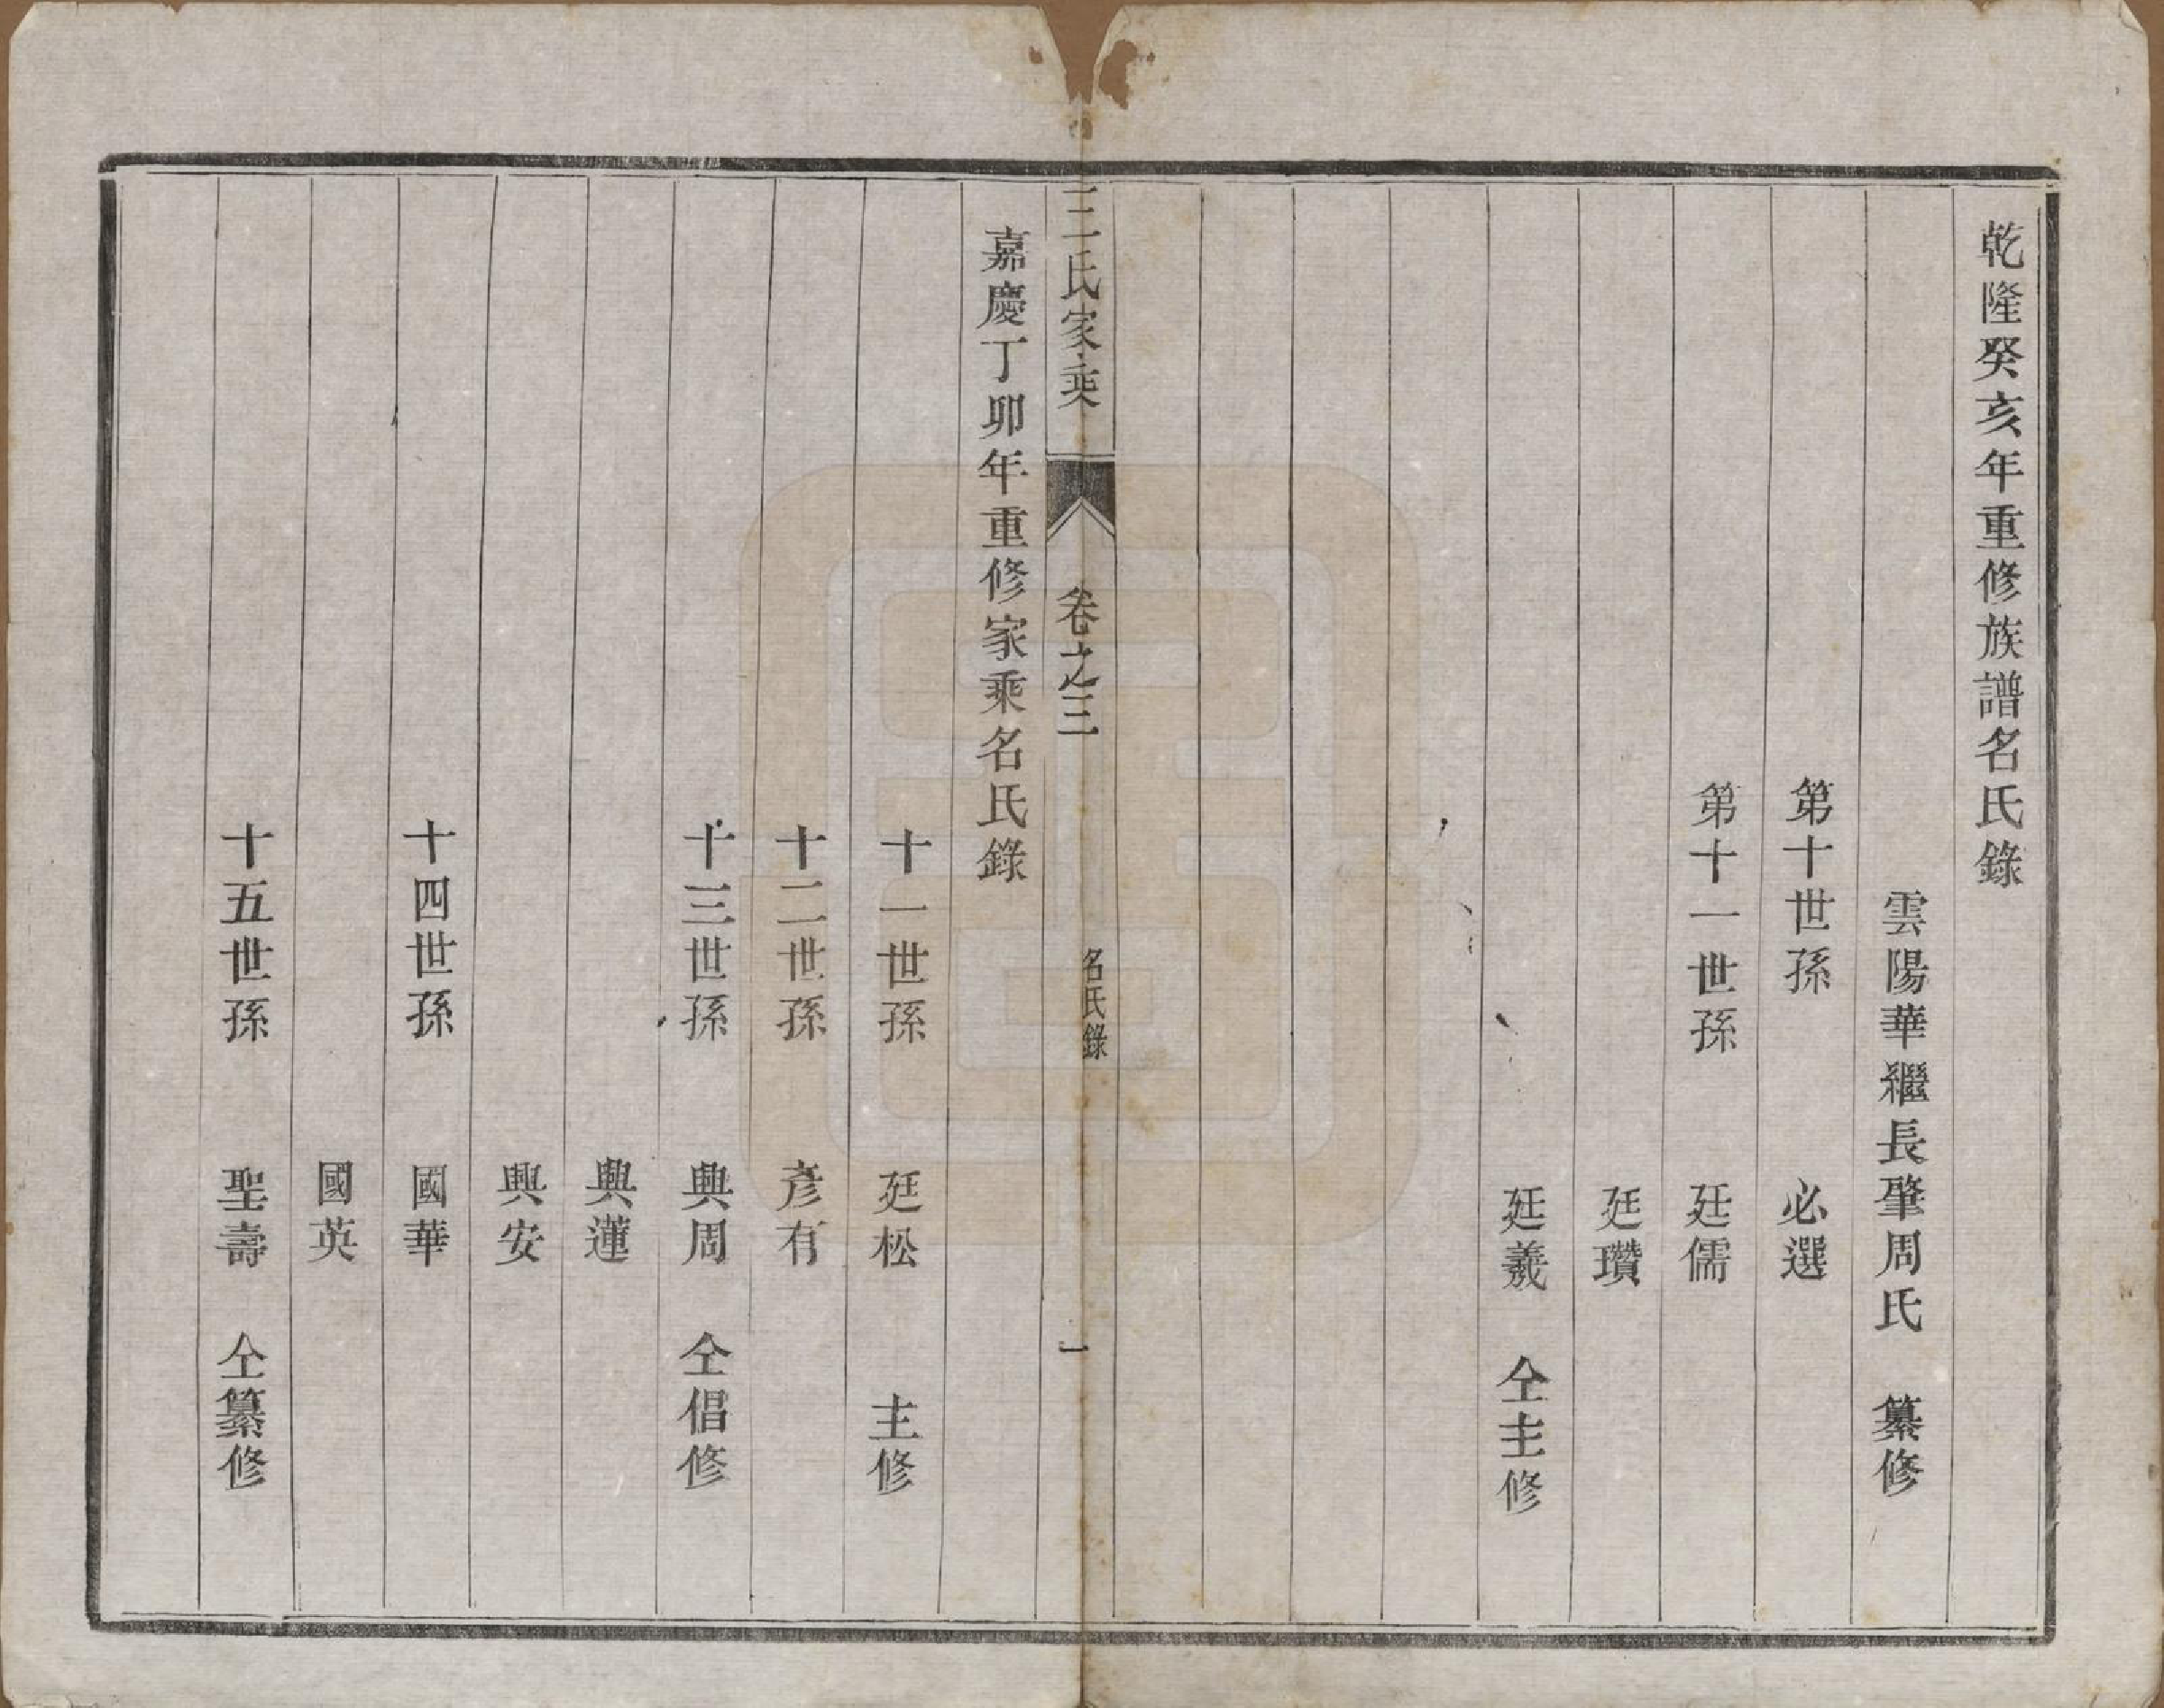 乾隆癸亥年重修族譜名氏錄
雲陽華繼長肇周氏 纂修
第十世孫 必選
第十一世孫 廷儒
廷瓚
廷羲 仝主修
王氏家乘 卷之三 名氏錄 一
嘉慶丁卯年重修家乘名氏錄
十一世孫 廷松 主修
十二世孫 彥有
十三世孫 興周 仝倡修
興蓮
興安
十四世孫 國華
國英
十五世孫 聖壽 仝纂修